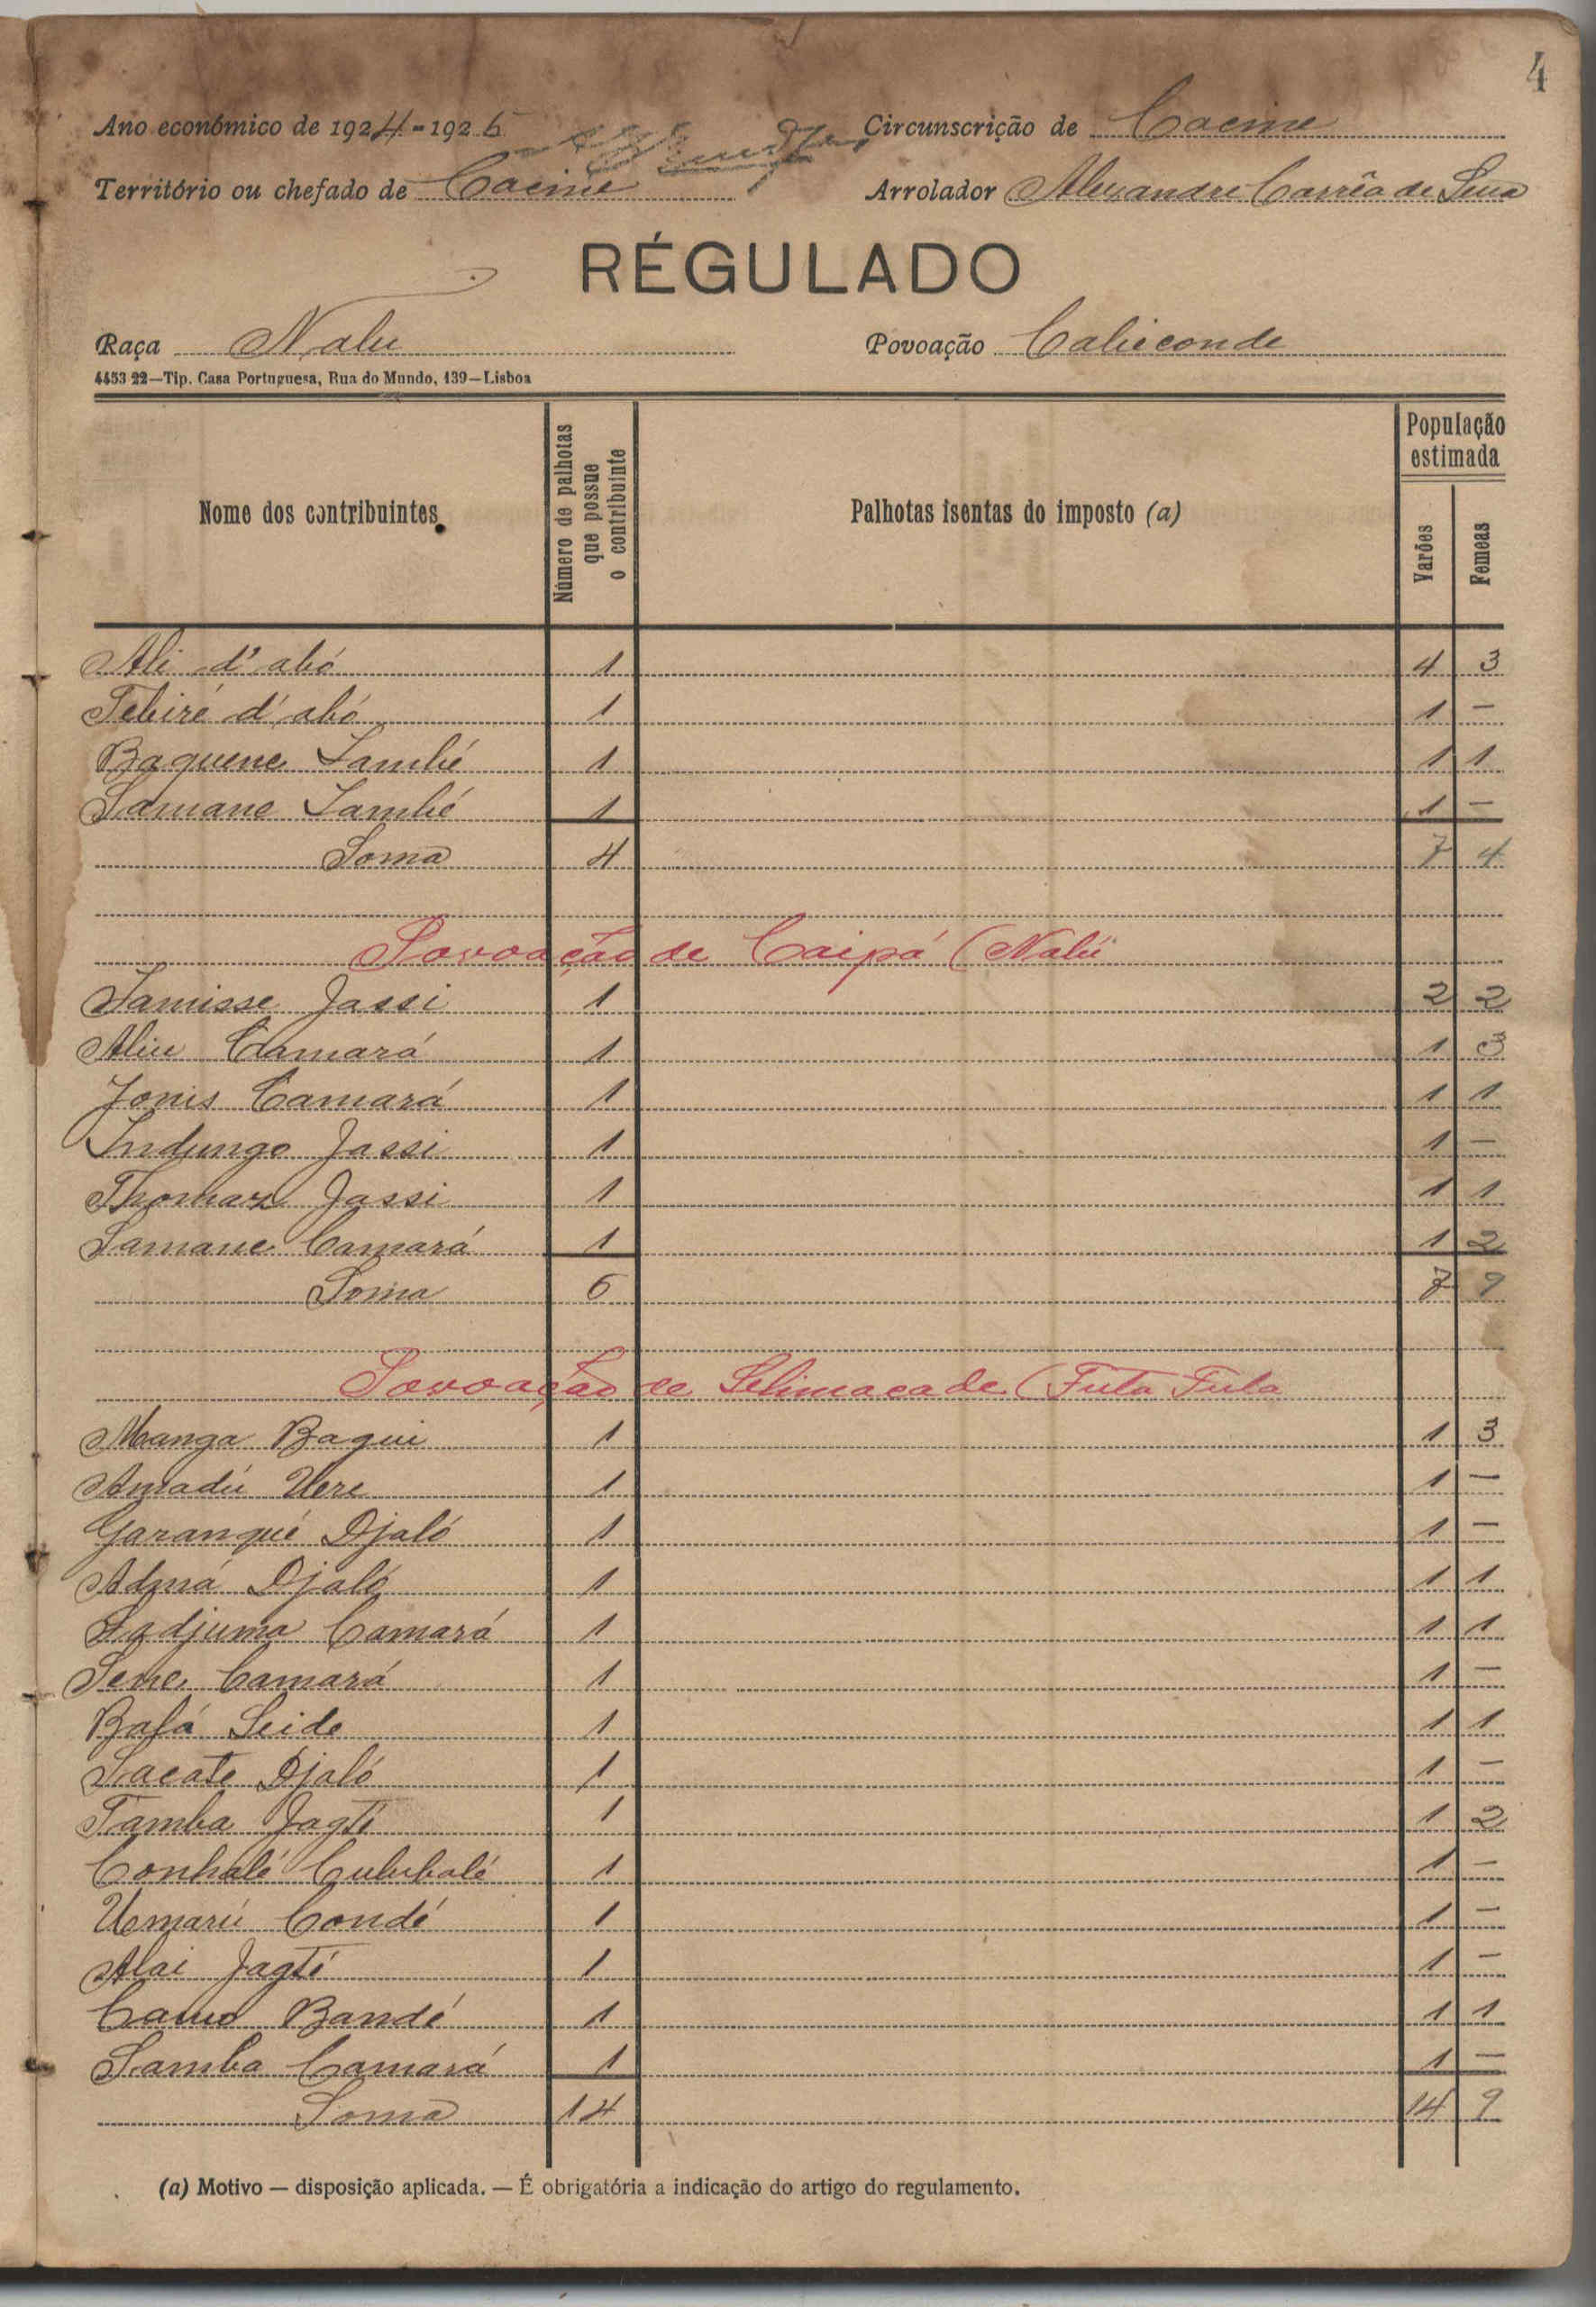 4
Ano económico de 1924-1925 Circunscrição de Cacine
Território ou chefado de Cacine Arrolador Alexandre Corrêa de Sena
RÉGULADO
Raça Nalu Povoação Calieconde
4453 22—Tip. Casa Portuguesa, Rua do Mundo, 139—Lisboa
Nome dos contribuintes Número de palhotas que possue o contribuinte Palhotas isentas do imposto (a) População estimada Varões Femeas
Ali d'abó 1 4 3
Tebiré d'abó 1 1 —
Baquene També 1 1 1
Samane També 1 1 —
Soma 4 7 4
Povoação de Caipá (Nalú
Lamisse Jassi 1 2 2
Aliu Camará 1 1 3
Jonis Camará 1 1 1
Indungo Jassi 1 1 —
Thomaz Jassi 1 1 1
Samane Camará 1 1 2
Soma 6 7 9
Povoação de Selimacade (Futa Fula
Manga Baqui 1 1 3
Amadú Uere 1 1 —
Garanqué Djaló 1 1 —
Admá Djaló 1 1 1
Sadjuma Camará 1 1 1
Sene Camará 1 1 —
Bafá Seide 1 1 1
Sacate Djaló 1 1 —
Tamba Jagté 1 1 2
Conhalé Culubalé 1 1 —
Umarú Condé 1 1 —
Alai Jagté 1 1 —
Camo Bandé 1 1 1
Samba Camará 1 1 —
Soma 14 14 9
(a) Motivo — disposição aplicada. — É obrigatória a indicação do artigo do regulamento.